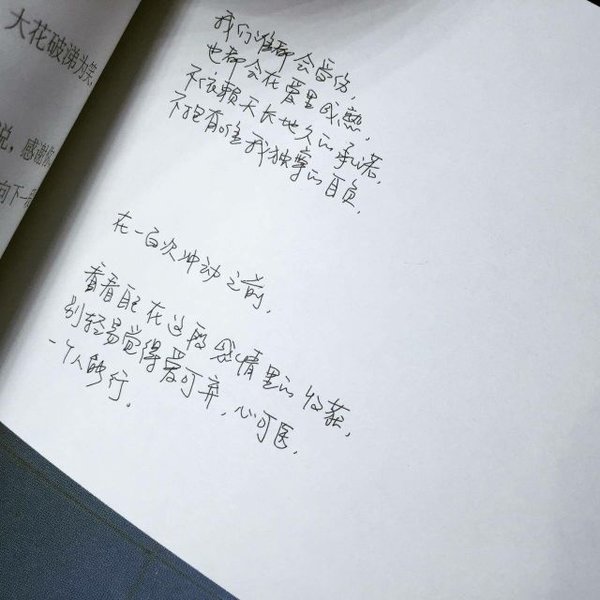 大花破涕为笑,
说，感谢你
向下一段
我们谁都会受伤,
也都会在爱里成熟,
不依赖天长地久的承诺,
不担有唯我独尊的自负.
在一百次冲动之前,
看看自己在这段感情里的收获,
别轻易觉得爱可弃, 心可医,
一个人能行.